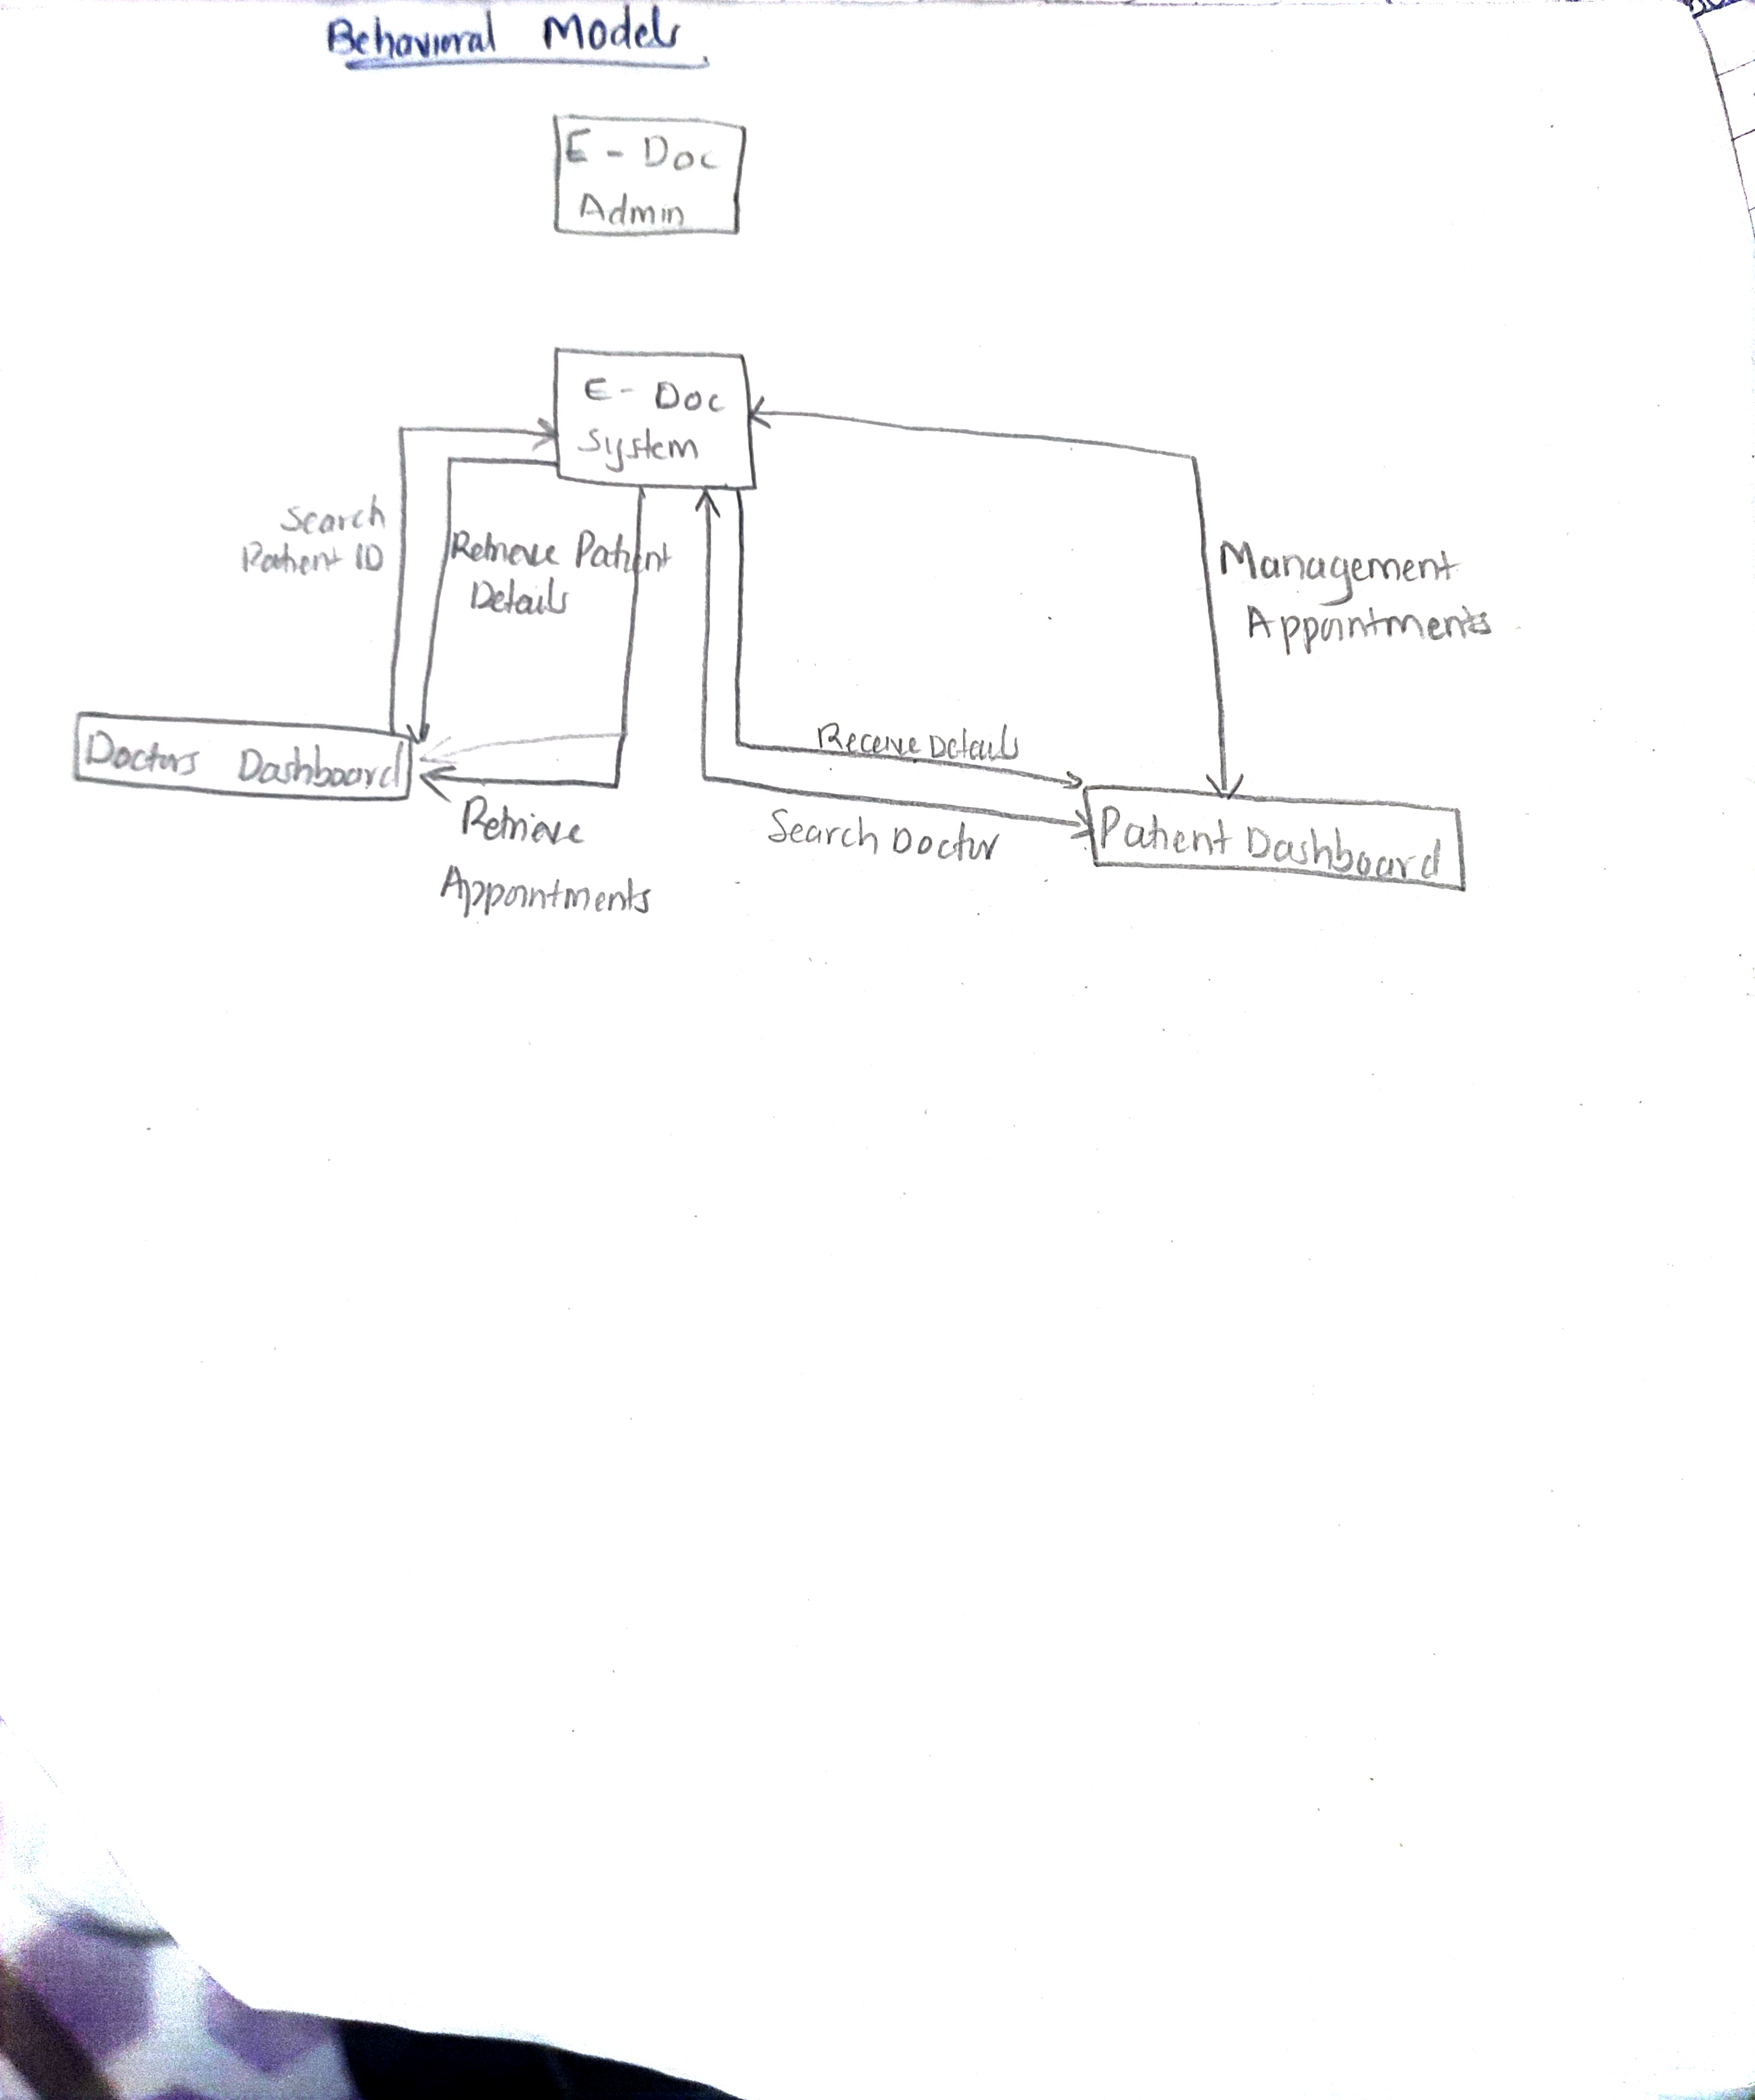 Behavioral Models
E - Doc
Admin
E - Doc
System
Search
Patient ID
Retrieve Patient
Details
Management
Appointments
Doctors Dashboard
Receive Details
Retrieve
Appointments
Search Doctor
Patient Dashboard